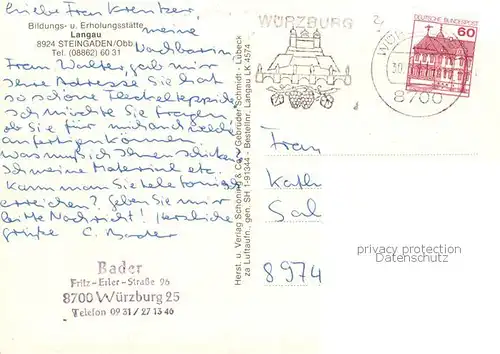 Liebe Frau Kreutzer
Bildungs- u. Erholungsstätte
Langau
8924 STEINGADEN/Obb.
Tel. (08862) 60 31
meine
Nachbarin
Frau Walter gab mir
Ihre Adresse Sie hat
so schöne Fleckelteppiche
ich möchte Sie fragen
ob Sie für mich auch welche
anfertigen können
was muß ich Ihnen schicken
ich meine Material etc.
Kann man Sie telefonisch
erreichen? Geben Sie mir
bitte Nachricht! Herzliche
Grüße C. Bader
Bader
Fritz-Erler-Straße 96
8700 Würzburg 25
Telefon 09 31 / 27 13 46
Herst. u. Verlag Schöning & Co + Gebrüder Schmidt - Lübeck
za Luftaufn., gen. SH 1-91344 - Bestellnr. Langau LK 4574
WÜRZBURG
30.
8700
DEUTSCHE BUNDESPOST
60
Frau
Kath
Sal
8974
privacy protection
Datenschutz